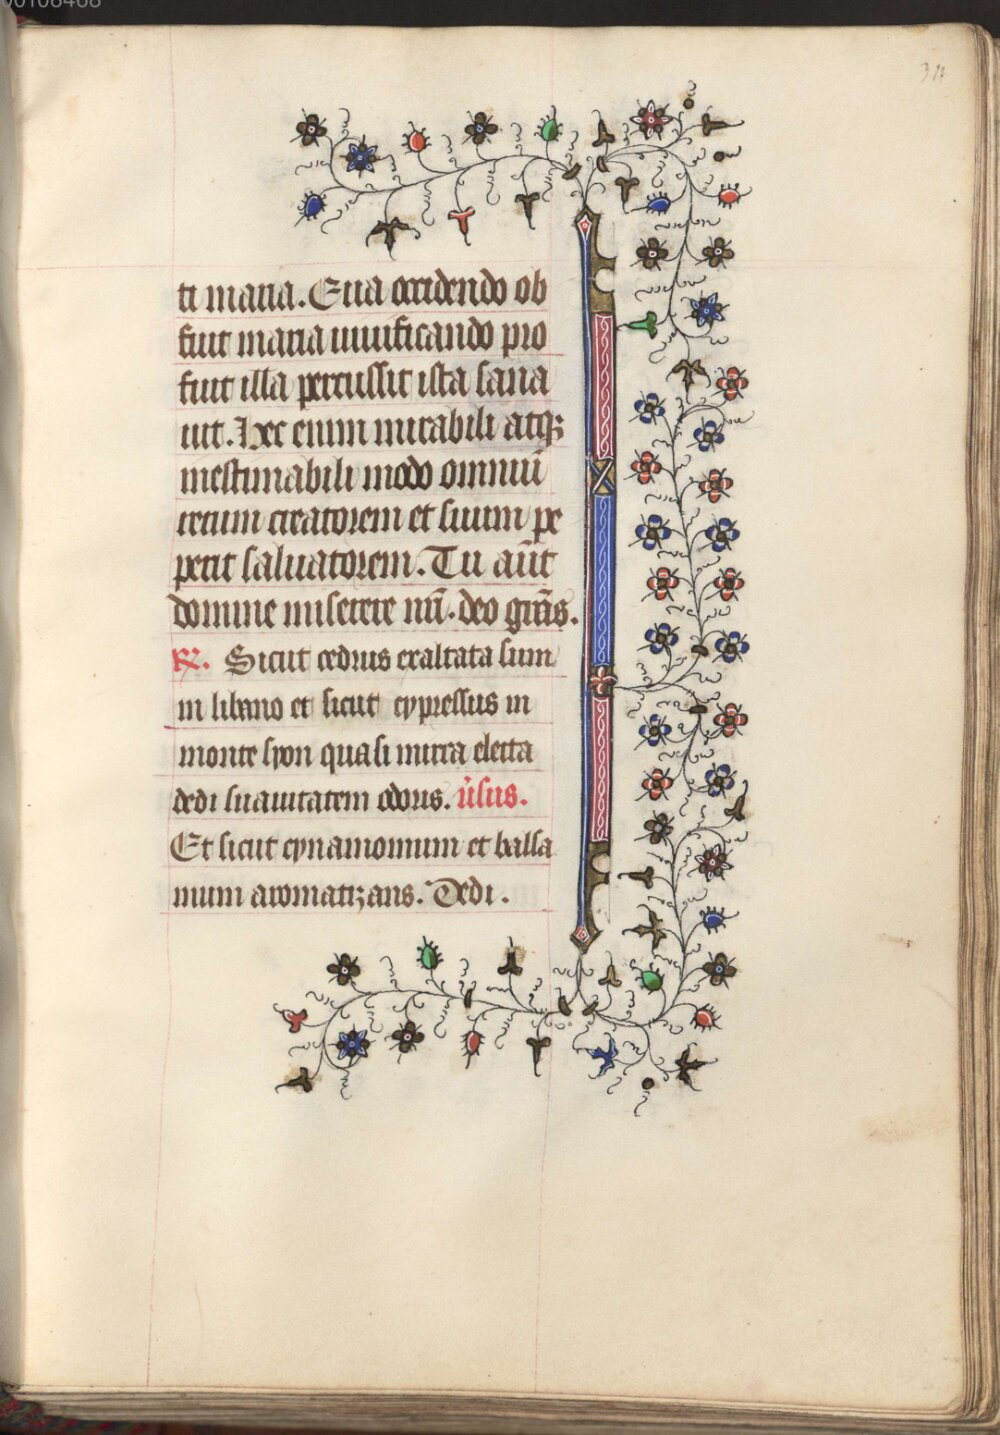 00108468
34
ti maria. Eua occidendo ob
fuit maria uiuificando pro
fuit illa percussit ista sana
uit. Hec enim mirabili atqꝫ
inestimabili modo omniū
rerum creatorem et suum pe
perit saluatorem. Tu aūt
domine miserere nr̄i. deo grās.
℟. Sicut cedrus exaltata sum
in libano et sicut cypressus in
monte syon quasi mirra electa
dedi suauitatem odoris. ůsus.
Et sicut cynamomum et balsa
mum aromatizans. Dedi.